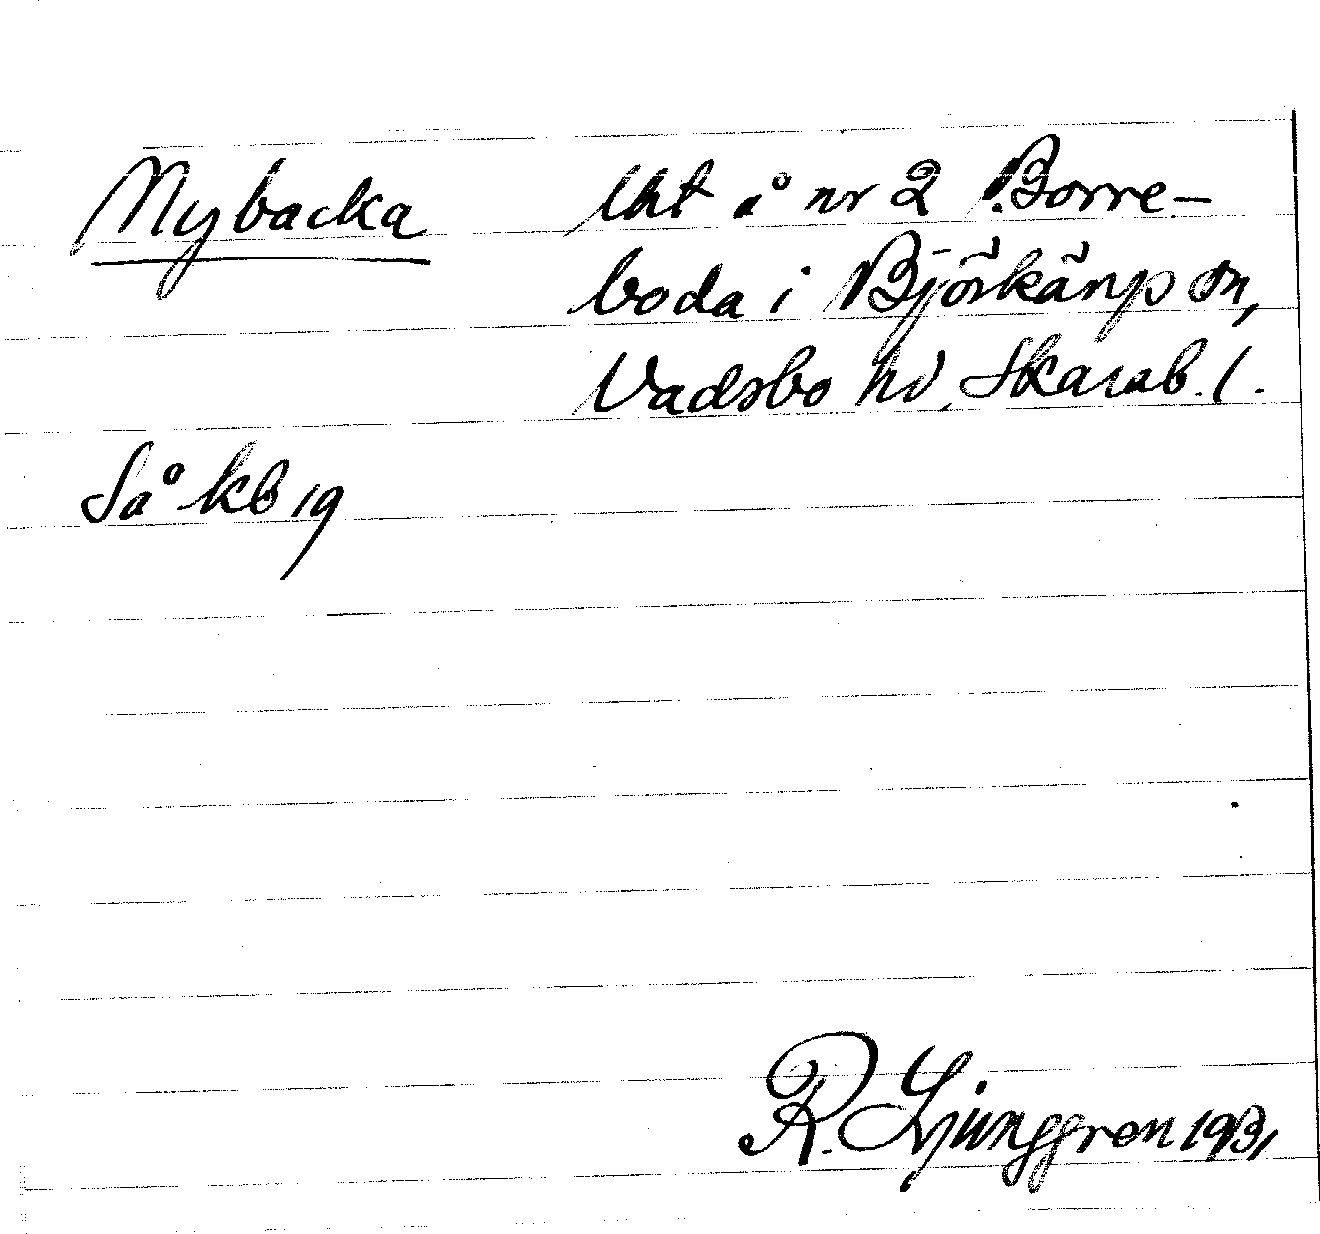 Nybacka
Lht å nr 2 Borre-
boda i Björkängs sn,
Vadsbo hd, Skarab. l.
Så kb 19
R. Ljunggren 1931